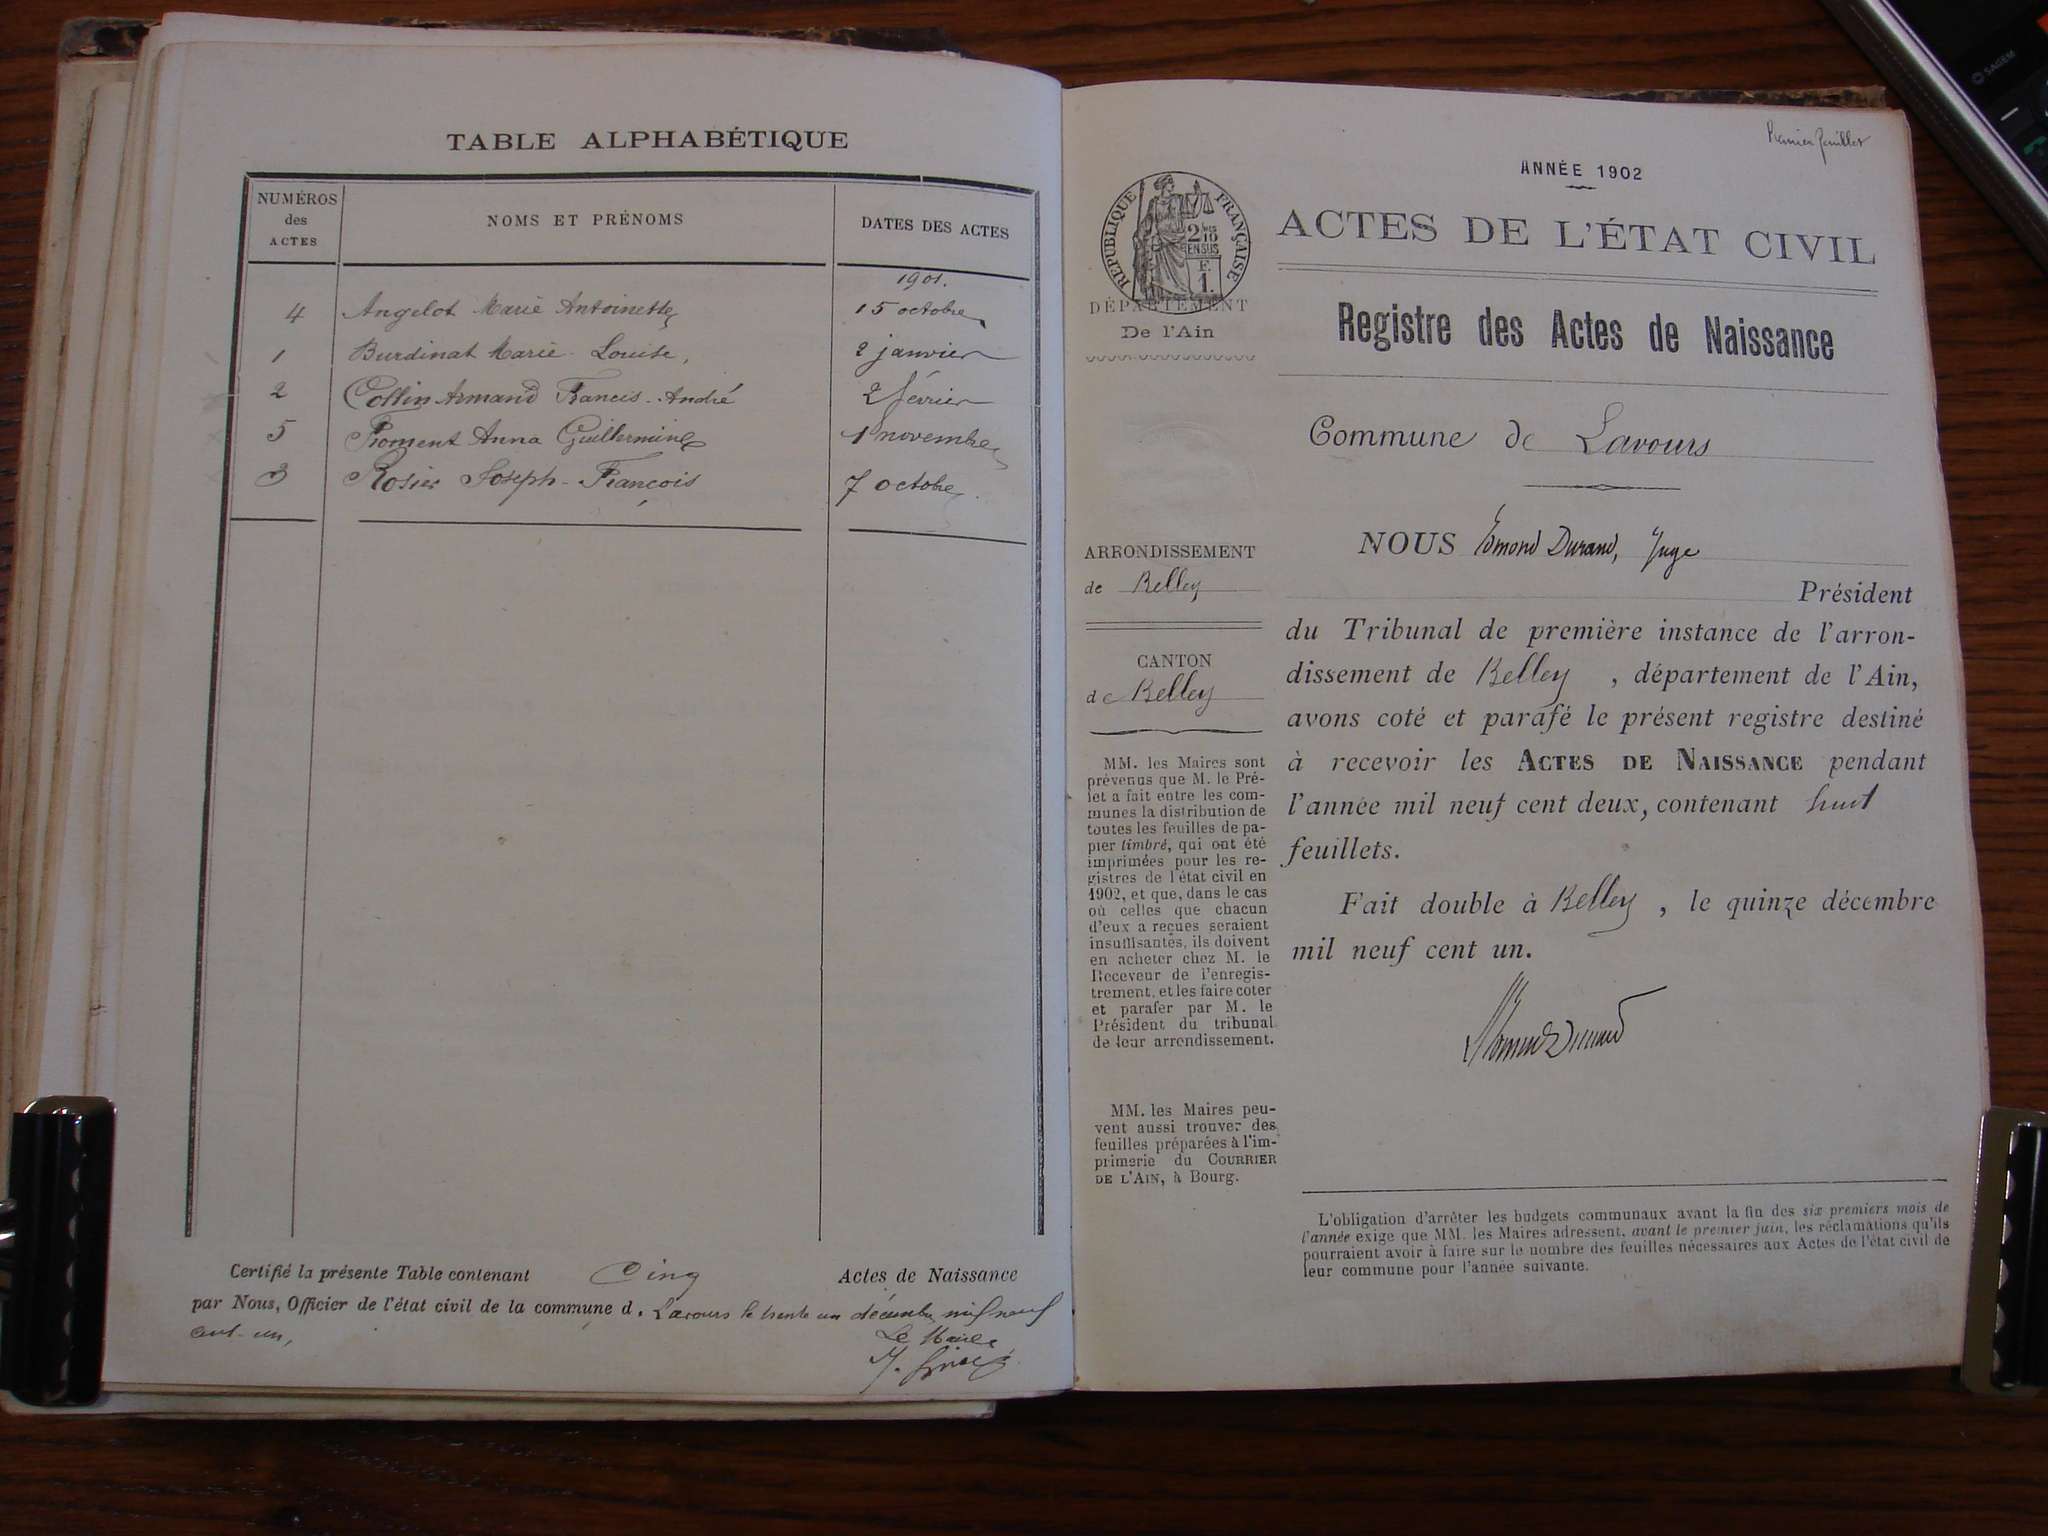 TABLE ALPHABÉTIQUE
NUMÉROS des ACTES
NOMS ET PRÉNOMS
DATES DES ACTES
1901.
4 Angelot Marie Antoinette 15 octobre
1 Burdinat Marie-Louise, 2 janvier
2 Collin Armand Francis-André 2 février
5 Froment Anna Guillermine 1 novembre
3 Rosier Joseph-François 7 octobre
Certifié la présente Table contenant Cinq Actes de Naissance
par Nous, Officier de l'état civil de la commune d. Lavours le trente un décembre mil neuf
cent-un,
Le Maire
Premier feuillet
ANNÉE 1902
RÉPUBLIQUE FRANÇAISE
2/10
EN SUS
F.
1.
DÉPARTEMENT
De l'Ain
ACTES DE L'ÉTAT CIVIL
Registre des Actes de Naissance
Commune de Lavours
ARRONDISSEMENT
de Belley
CANTON
de Belley
MM. les Maires sont
prévenus que M. le Pré-
fet a fait entre les com-
munes la distribution de
toutes les feuilles de pa-
pier timbré, qui ont été
imprimées pour les re-
gistres de l'état civil en
1902, et que, dans le cas
où celles que chacun
d'eux a reçues seraient
insuffisantes, ils doivent
en acheter chez M. le
Receveur de l'enregis-
trement, et les faire coter
et parafer par M. le
Président du tribunal
de leur arrondissement.
MM. les Maires peu-
vent aussi trouver des
feuilles préparées à l'im-
primerie du COURRIER
DE L'AIN, à Bourg.
NOUS Edmond Durand, Juge
Président
du Tribunal de première instance de l'arron-
dissement de Belley, département de l'Ain,
avons coté et parafé le présent registre destiné
à recevoir les ACTES DE NAISSANCE pendant
l'année mil neuf cent deux, contenant huit
feuillets.
Fait double à Belley, le quinze décembre
mil neuf cent un.
Edmond Durand
L'obligation d'arrêter les budgets communaux avant la fin des six premiers mois de
l'année exige que MM. les Maires adressent, avant le premier juin, les réclamations qu'ils
pourraient avoir à faire sur le nombre des feuilles nécessaires aux Actes de l'état civil de
leur commune pour l'année suivante.
SAGEM